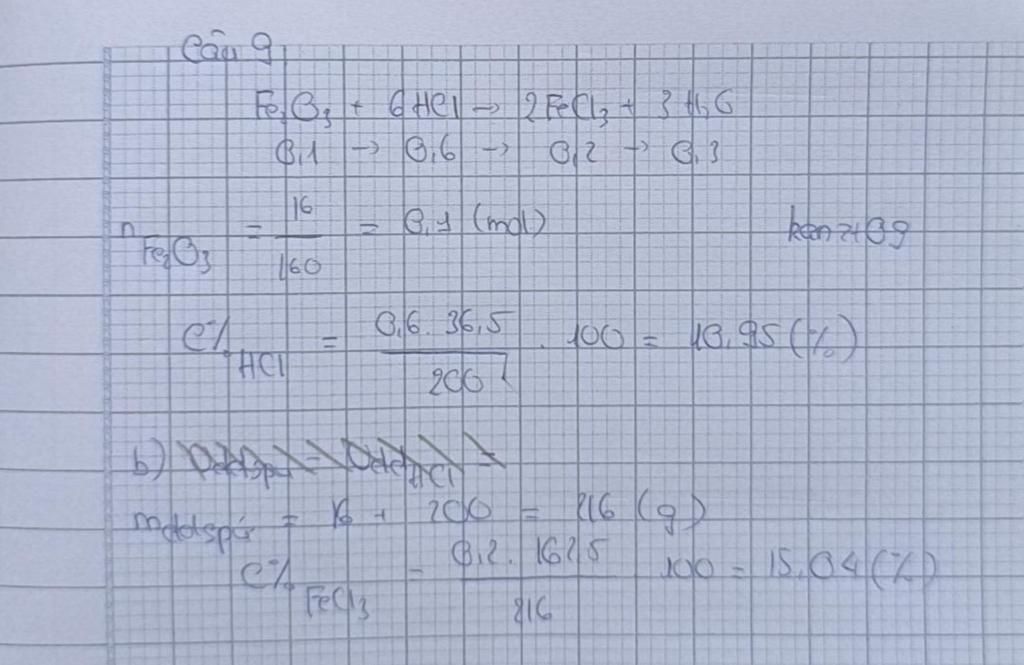 Câu 9
Fe₂O₃ + 6HCl → 2FeCl₃ + 3H₂O
0,1 → 0,6 → 0,2 → 0,3
n Fe₂O₃ = 16/160 = 0,1 (mol)
C% HCl = 0,6 . 36,5 / 200 . 100 = 10,95 (%)
b)
mddspứ = 16 + 200 = 216 (g)
C% FeCl₃ = 0,2 . 162,5 / 216 100 = 15,04 (%)